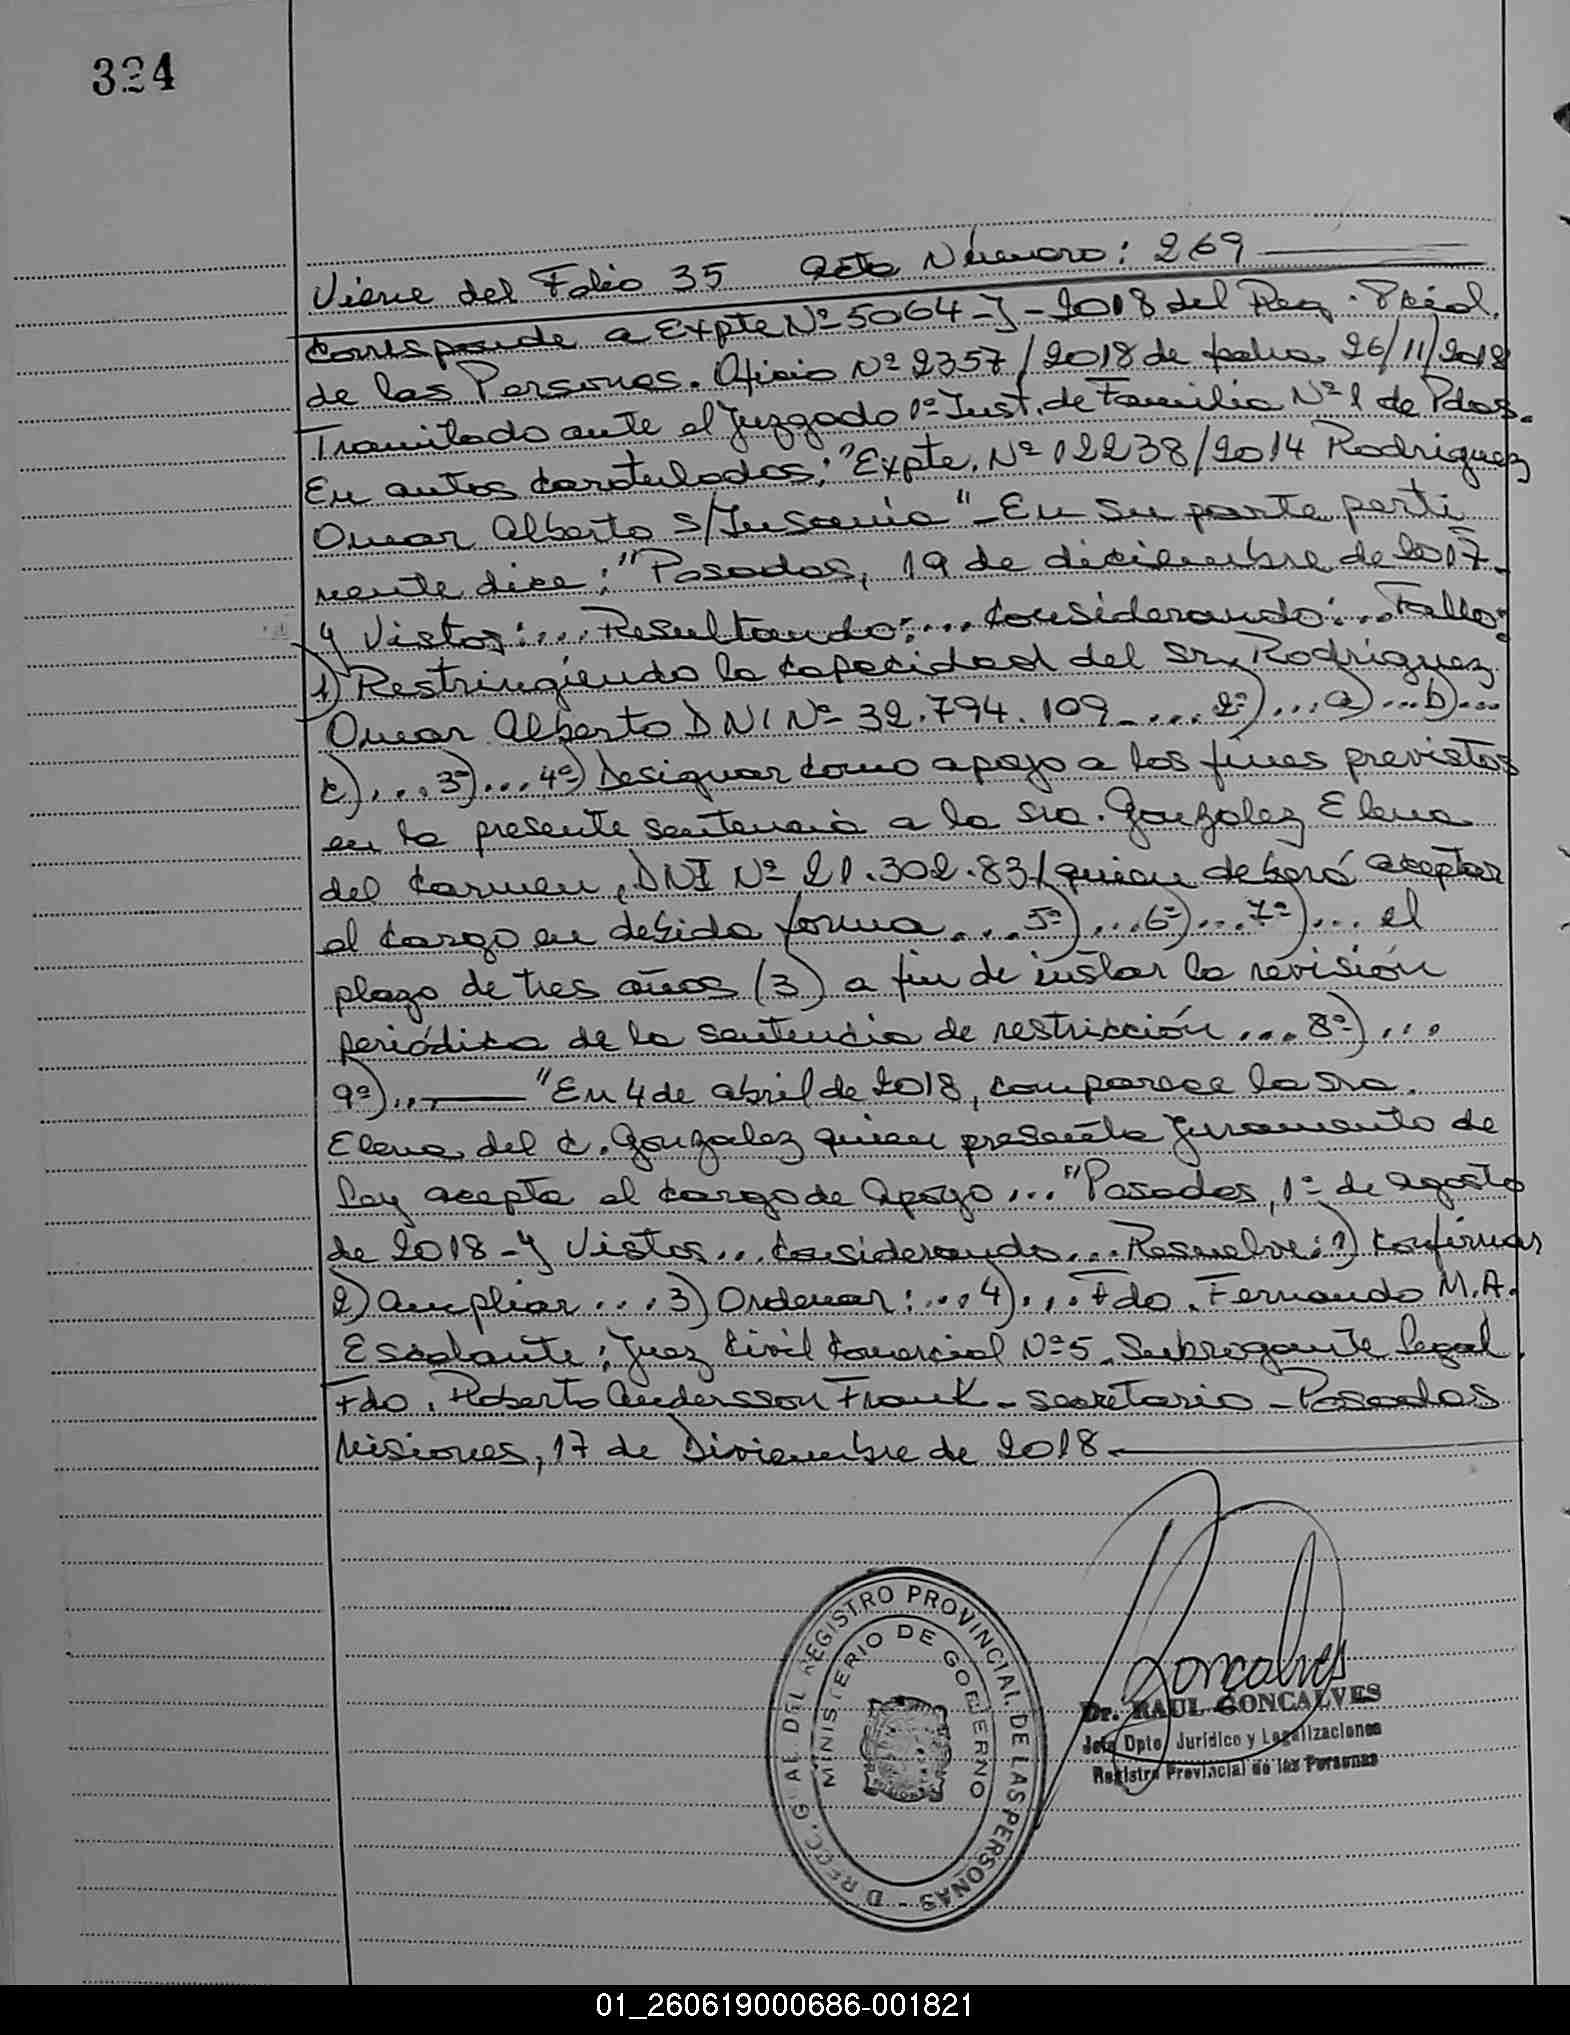 324
Viene del Folio 35 Acta Número: 269
Corresponde a Expte Nº 5064-J-2018 del Reg. Pcial.
de las Personas. Oficio Nº 2357/2018 de fecha 26/11/2018
Tramitado ante el Juzgado 1º Inst. de Familia Nº 1 de Pdas.
En autos caratulados: "Expte. Nº 12238/2014 Rodriguez
Omar Alberto s/Insania" - En su parte perti
nente dice: "Posadas, 19 de diciembre de 2017.
y Vistos:... Resultando:... Considerando:... Fallo:
1) Restringiendo la capacidad del Sr. Rodriguez
Omar Alberto DNI Nº 32.794.109 - ... 2º) ... a) ... b) ...
c) ... 3º) ... 4º) Designar como apoyo a los fines previstos
en la presente sentencia a la Sra. Gonzalez Elena
del Carmen, DNI Nº 21.302.831 quien deberá aceptar
el cargo en debida forma ... 5º) ... 6º) ... 7º) ... el
plazo de tres años (3) a fin de instar la revisión
periódica de la sentencia de restricción ... 8º) ...
9º) ... "En 4 de abril de 2018, comparece la Sra.
Elena del C. Gonzalez quien presenta Juramento de
Ley acepta el cargo de Apoyo ... "Posadas, 1º de agosto
de 2018 - y Vistos ... Considerando ... Resuelve: 1) Confirmar
2) Ampliar ... 3) Ordenar: ... 4) ... Fdo. Fernando M.A.
Escalante; Juez Civil Comercial Nº 5. Subrogante legal.
Fdo. Roberto Andersson Frank - Secretario - Posadas
Misiones, 17 de Diciembre de 2018.
Goncalves
Dr. RAUL GONCALVES
Jefe Dpto. Jurídico y Legalizaciones
Registro Provincial de las Personas
DIRECC. GRAL. DEL REGISTRO PROVINCIAL DE LAS PERSONAS -
MINISTERIO DE GOBIERNO
01_260619000686-001821